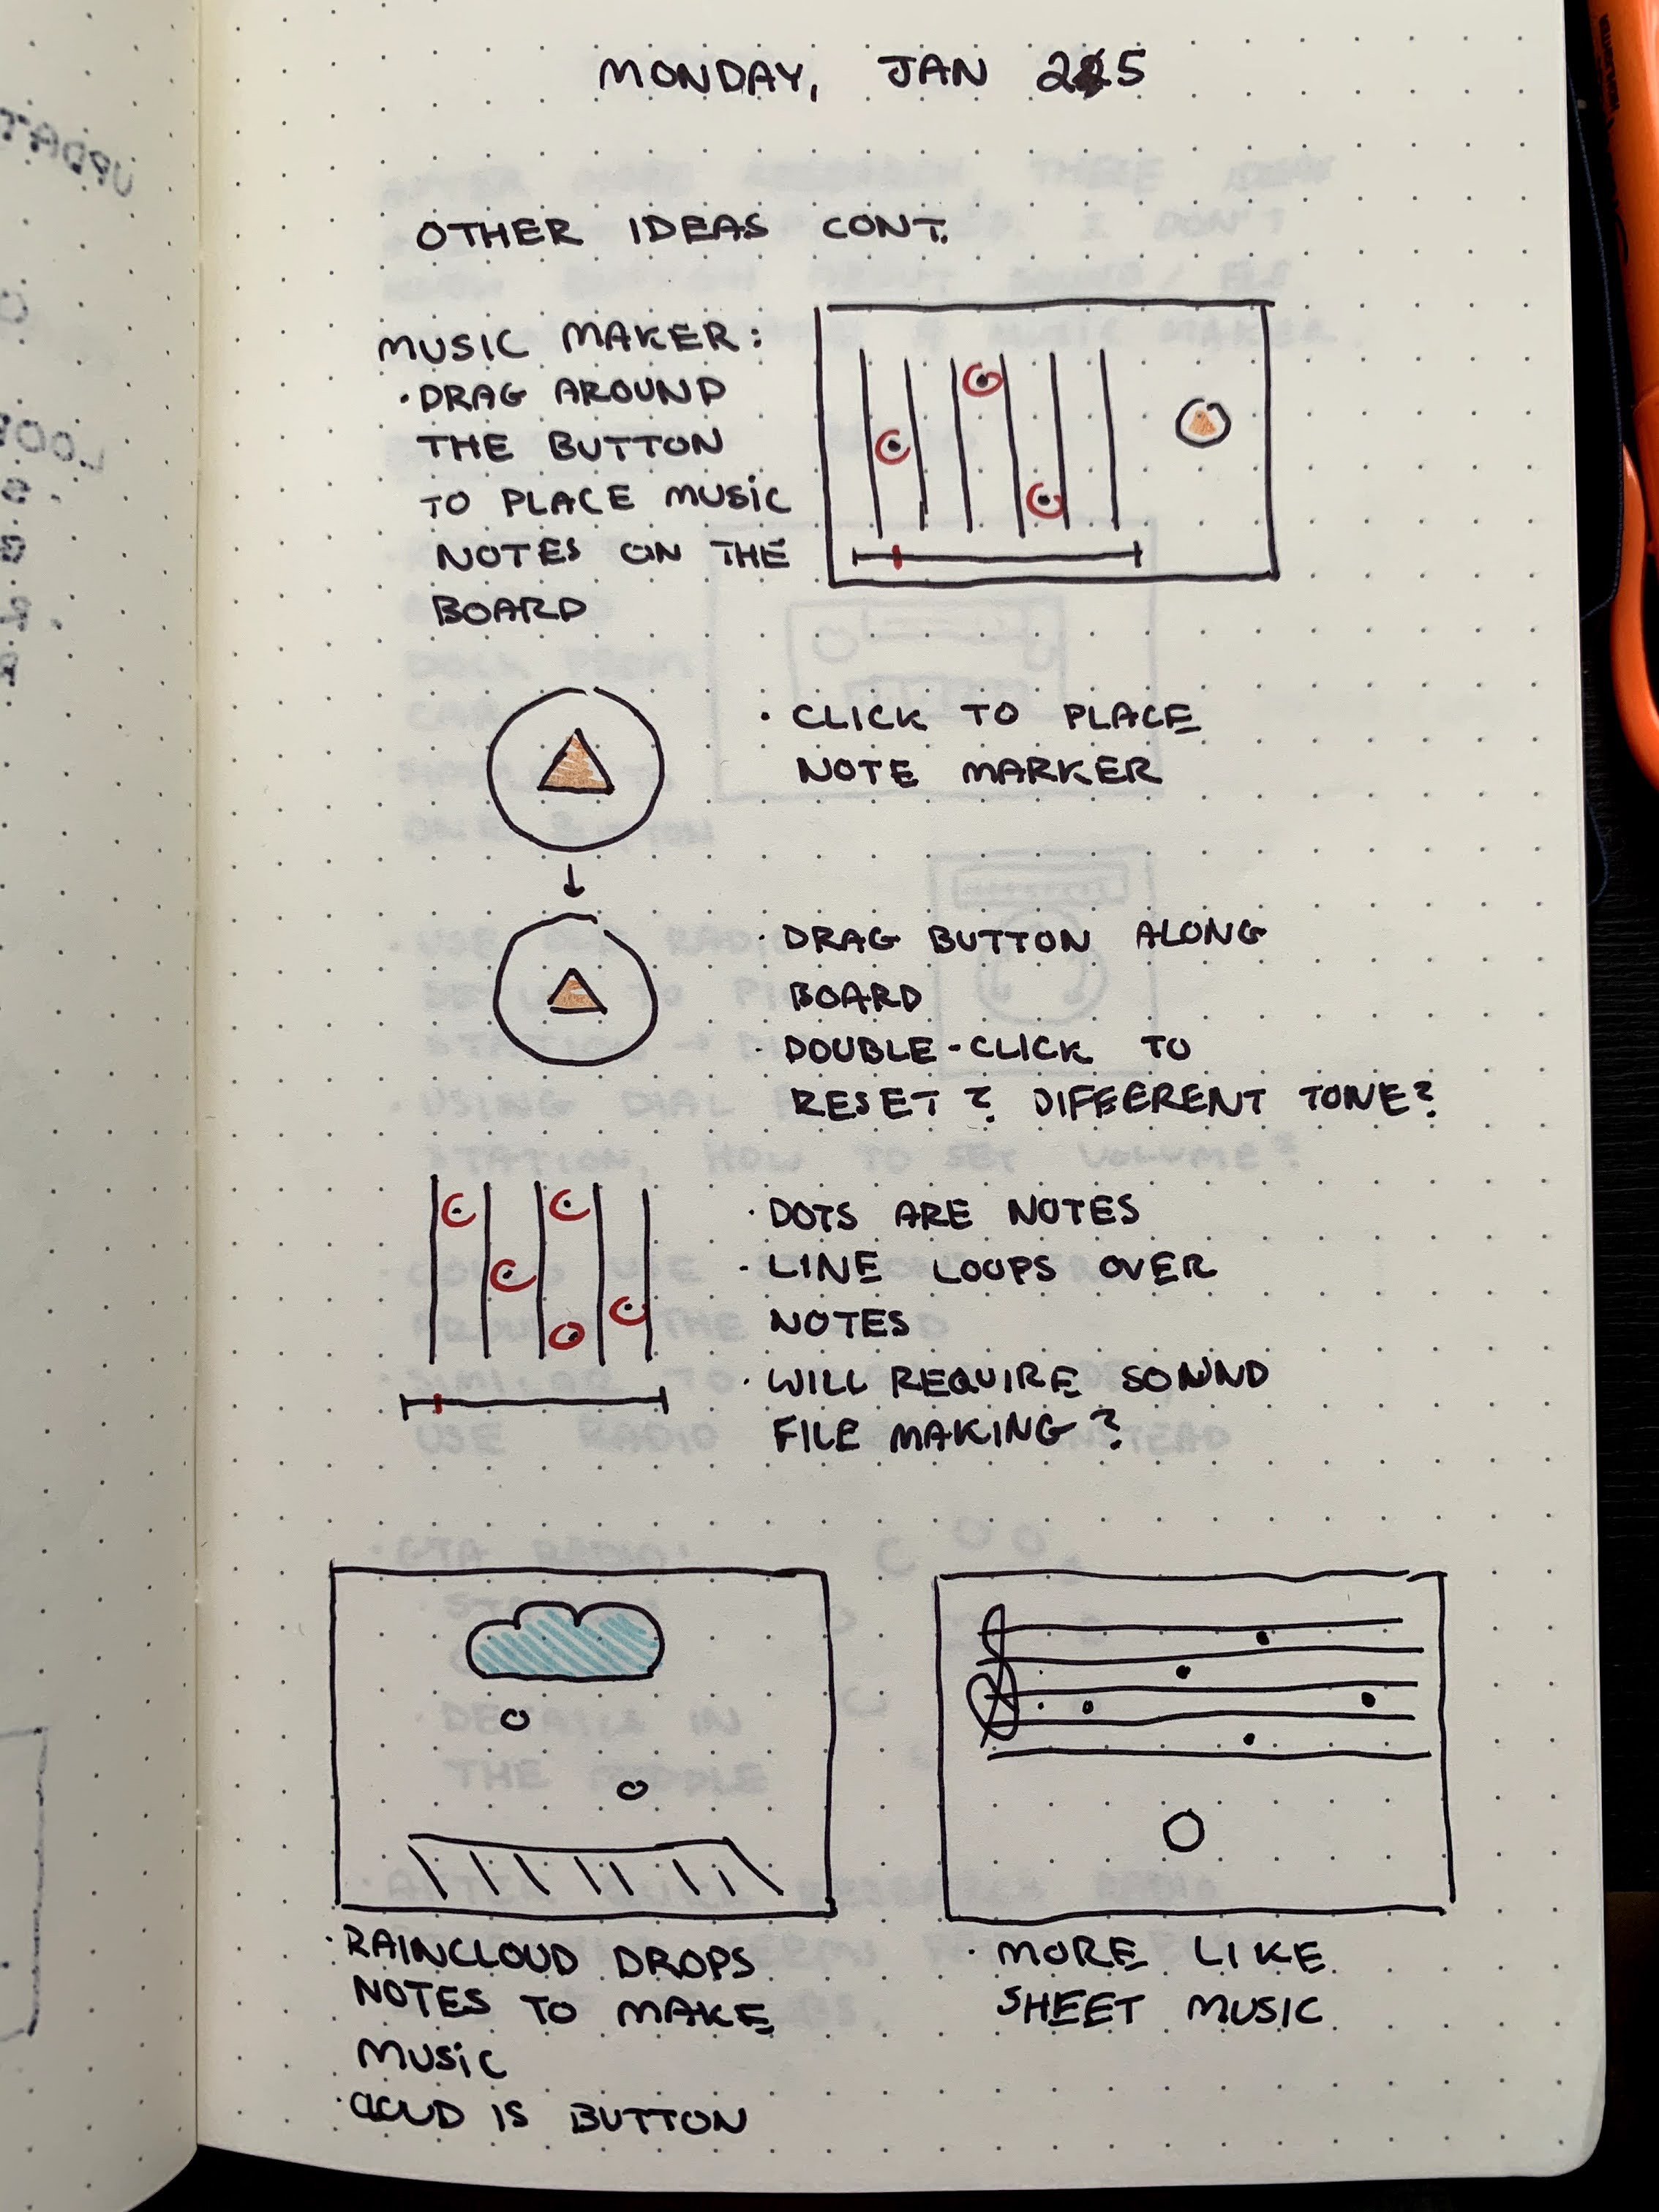 MONDAY, JAN 25
OTHER IDEAS CONT.
MUSIC MAKER:
· DRAG AROUND
THE BUTTON
TO PLACE MUSIC
NOTES ON THE
BOARD
· CLICK TO PLACE
NOTE MARKER
· DRAG BUTTON ALONG
BOARD
· DOUBLE-CLICK TO
RESET? DIFFERENT TONE?
· DOTS ARE NOTES
- LINE LOOPS OVER
NOTES
· WILL REQUIRE SOUND
FILE MAKING?
· RAINCLOUD DROPS
NOTES TO MAKE
MUSIC
· CLOUD IS BUTTON
· MORE LIKE
SHEET MUSIC